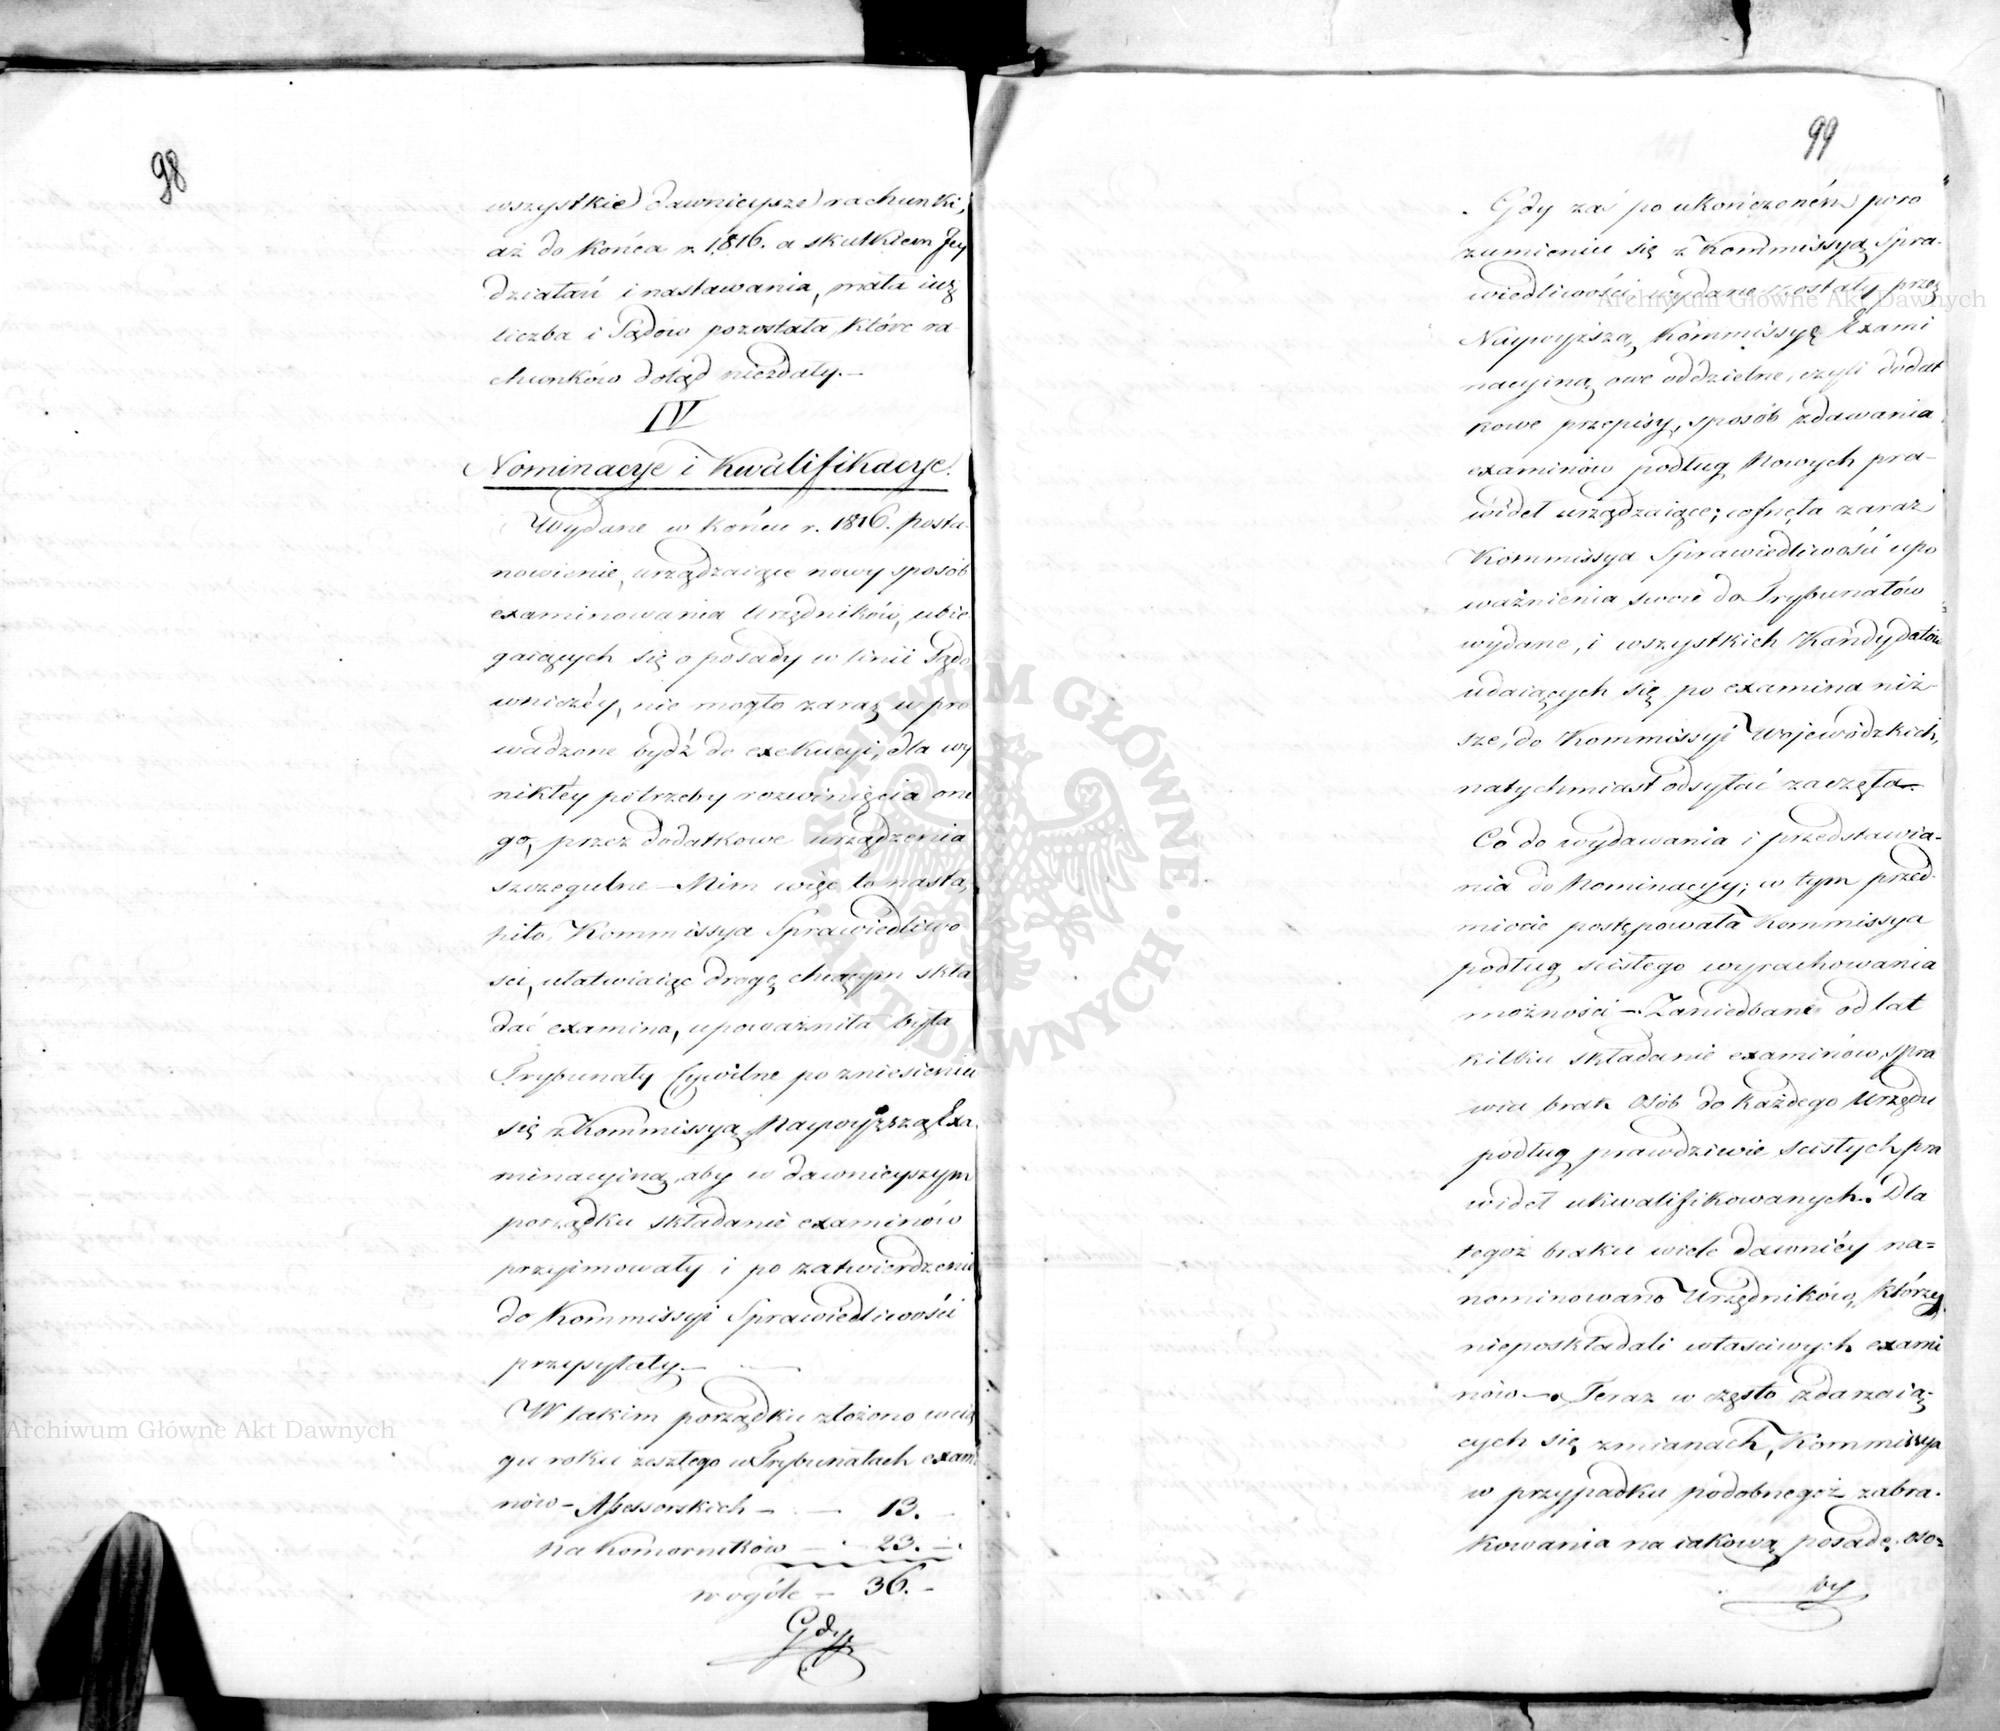 98
wszystkie dawnieysze rachunki,
aż do końca r. 1816. a skutkiem Jey
działań i nastawania, mała iuż
liczba i Sądów pozostała, które ra-
chunków dotąd niezdały.—
IV
Nominacye i Kwalifikacye.
Wydane w końcu r. 1816. posta-
nowienie, urządzaiące nowy sposób
examinowania Urzędników, ubie-
gaiących się o posady w linii Sądo
wniczéy, nie mogło zaraz wpro
wadzone bydź do exekucyi, dla wy
nikłey potrzeby rozwinięcia one
go, przez dodatkowe urządzenia
szczegulne — Nim więc to nastą
piło, Kommissya Sprawiedliwo
ści, ułatwiaiąc drogę chcącym skła
dać examina, upoważniła była
Trybunały Cywilne po zniesieniu
się z Kommissyą Naywyższą Exa
minacyiną, aby w dawnieyszym
porządku składanie examinów
przyimowały i po zatwierdzenie
do Kommissyi Sprawiedliwości
przysyłały.—
W takim porządku złożono w cią
gu roku zeszłego w Trybunałach exami
nów — Assessorskich — — 13. —
na Komorników — — 23. —
w ogóle — 36. —
Gdy
99
Gdy zaś po ukończoném poro
zumieniu się z Kommissyą Spra-
wiedliwości wydane zostały przez
Naywyższą Kommissyę Exami
nacyiną owe oddzielne, czyli dodat
kowe przepisy, sposób zdawania
examinów podług Nowych pra-
wideł urządzaiące; cofnęła zaraz
Kommissya Sprawiedliwości upo
ważnienia swoie do Trybunałów
wydane, i wszystkich Kandydatów
udaiących się po examina niż-
sze, do Kommissyi Wojewódzkich,
natychmiast odsyłać zaczęła.
Co do wydawania i przedstawia-
nia do Nominacyy; w tym przed-
miocie postępowała Kommissya
podług scisłego wyrachowania
możności — Zaniedbane od lat
kilku składanie examinów, spra
wia brak osób do każdego Urzędu
podług prawdziwie scisłych pra
wideł ukwalifikowanych. Dla
tegoż braku wiele dawniéy na=
nominowano Urzędników, którzy
nieposkładali właściwych exami
nów —. Teraz w często zdarzaią-
cych się zmianach, Kommissya
w przypadku podobnegoż zabra-
kowania na iakową posadę, oso=
by
Archiwum Główne Akt Dawnych
Archiwum Główne Akt Dawnych
ARCHIWUM GŁÓWNE · AKT DAWNYCH ·